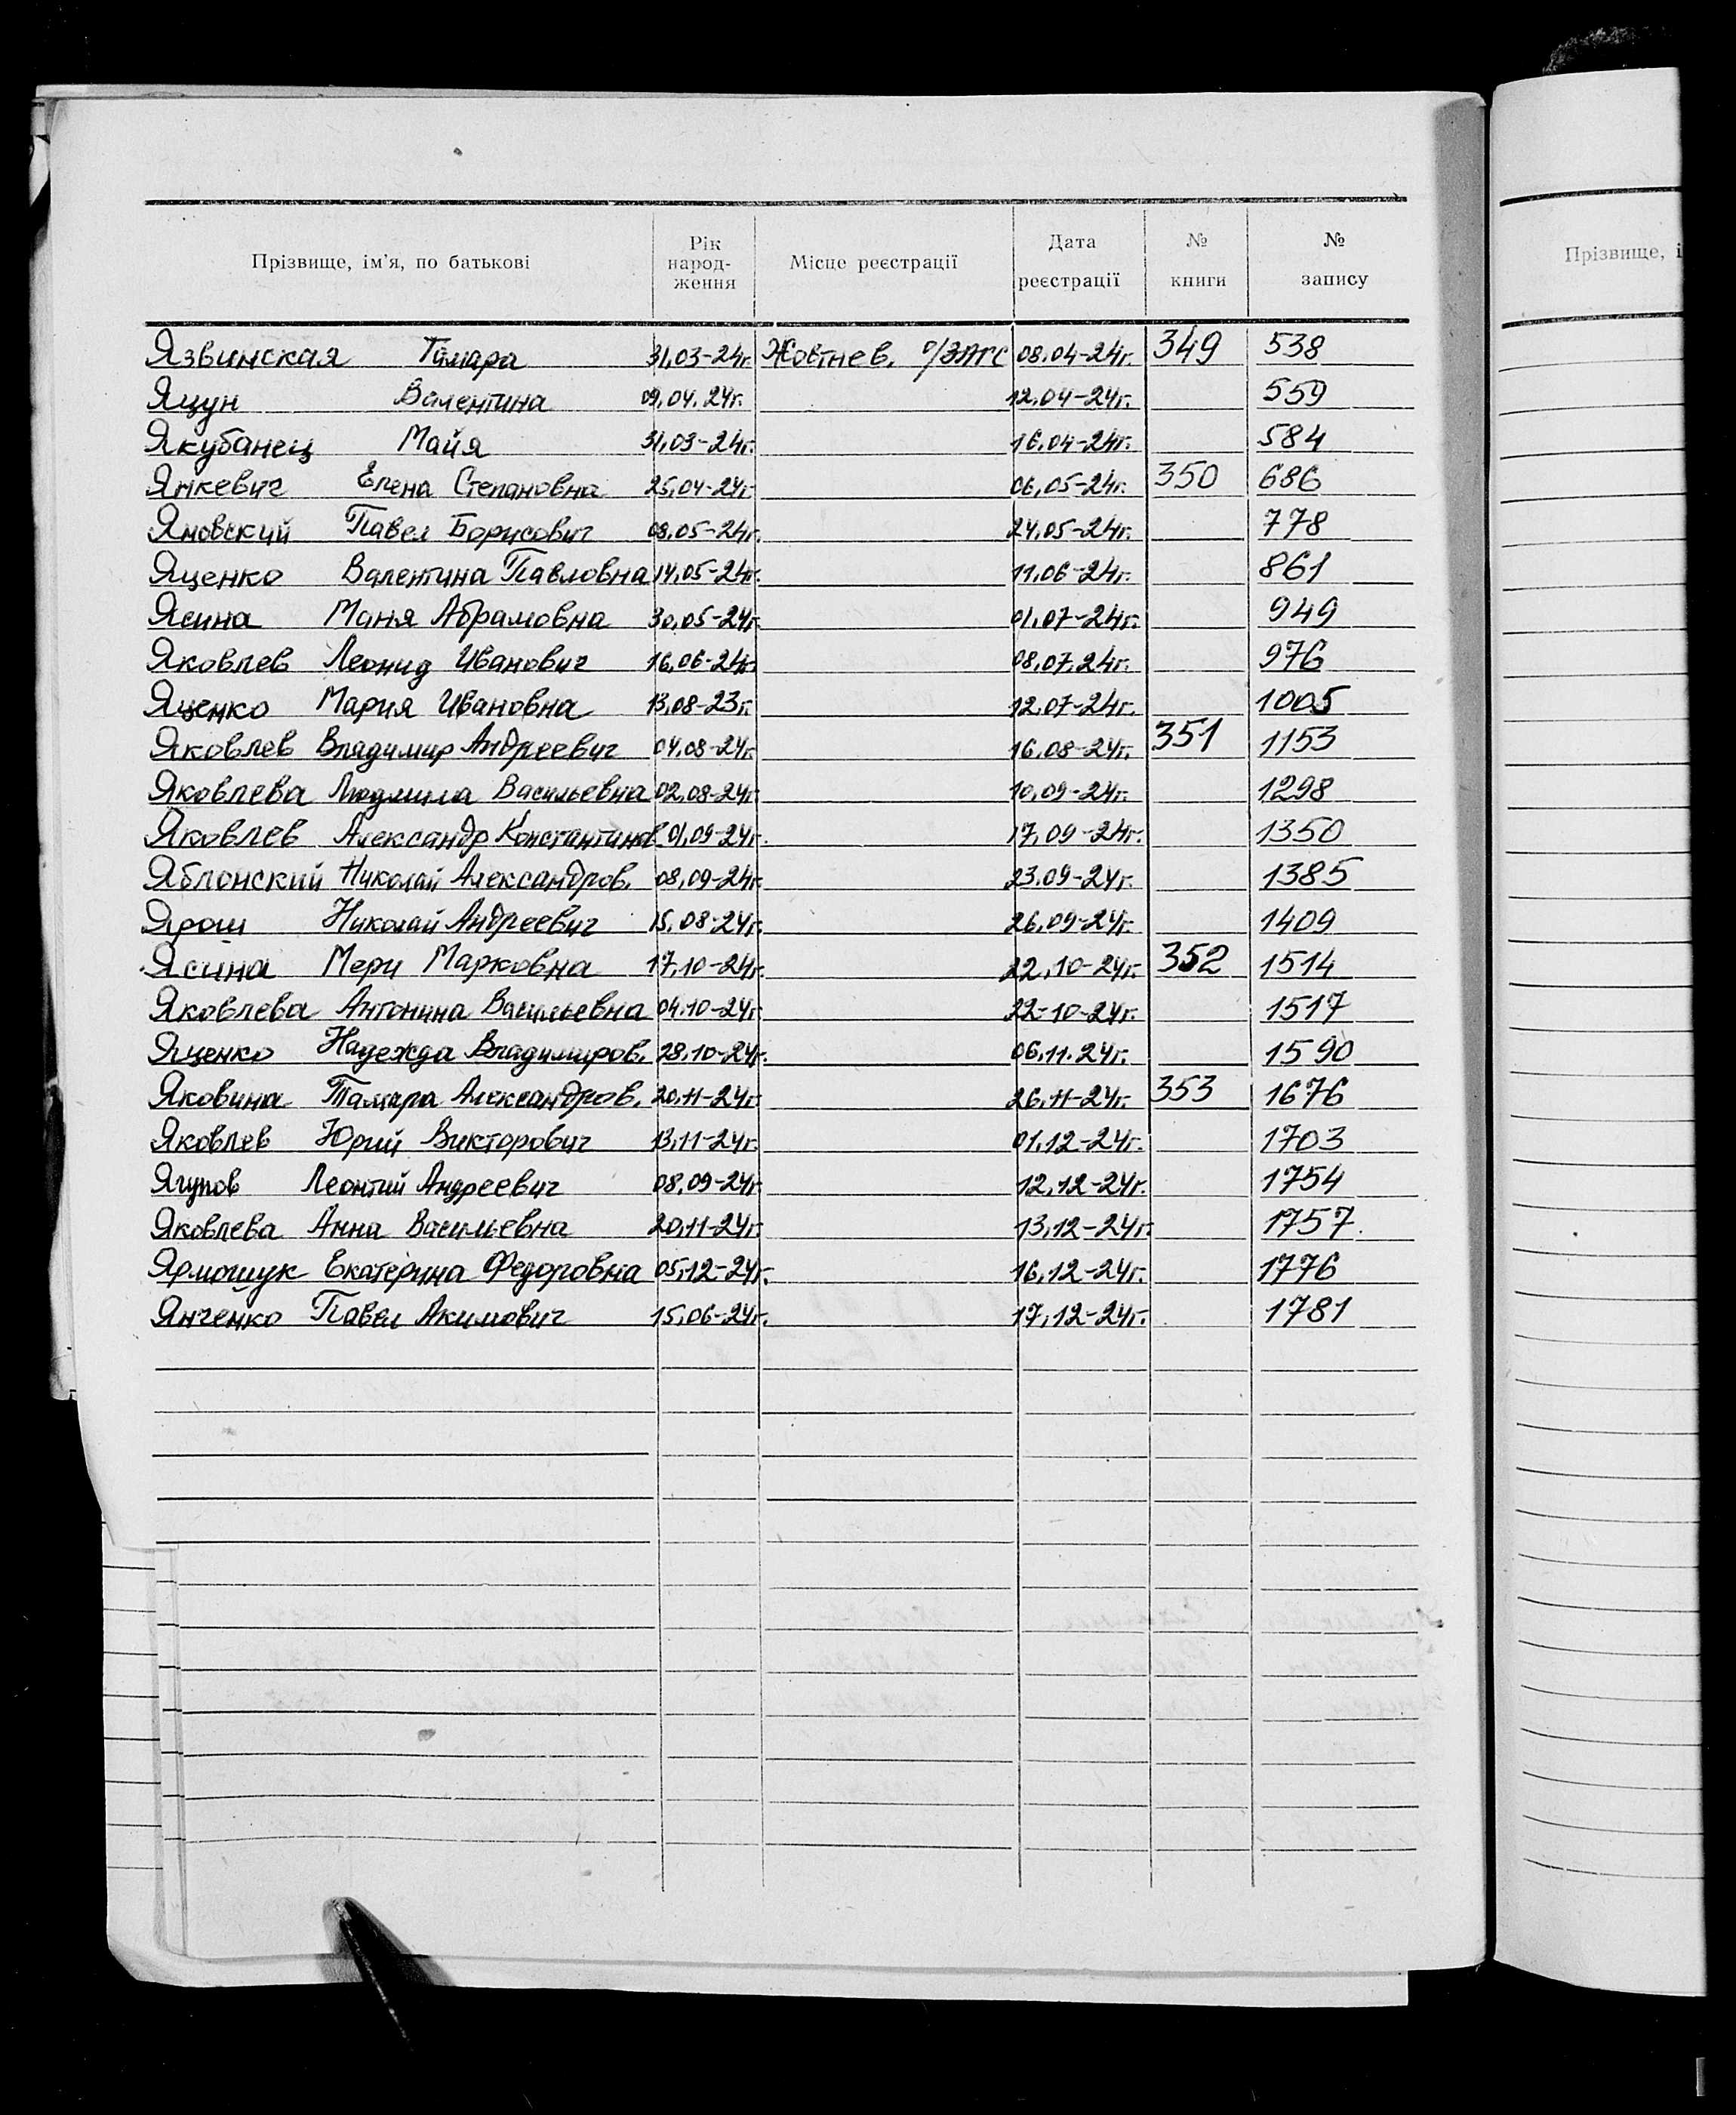 Прізвище, ім'я, по батькові Рік народ-ження Місце реєстрації Дата реєстрації № книги № запису
Прізвище, і
Язвинская Тамара 31.03-24г. Жовтнев. о/ЗАГС 08.04-24г. 349 538
Яцун Валентина 09.04.24г. 12.04-24г. 559
Якубанец Майя 31.03-24г. 16.04-24г. 584
Янкевич Елена Степановна 25.04-24г. 06.05-24г. 350 686
Яновский Павел Борисович 08.05-24г. 24.05-24г. 778
Яценко Валентина Павловна 14.05-24г. 11.06-24г. 861
Ясина Маня Абрамовна 30.05-24г. 01.07-24г. 949
Яковлев Леонид Иванович 16.06-24г. 08.07.24г. 976
Яценко Мария Ивановна 13.08-23г. 12.07-24г. 1005
Яковлев Владимир Андреевич 04.08-24г. 16.08-24г. 351 1153
Яковлева Людмила Васильевна 02.08-24г. 10.09-24г. 1298
Яковлев Александр Константинов. 01.09-24г. 17.09-24г. 1350
Яблонский Николай Александров. 08.09-24г. 23.09-24г. 1385
Ярош Николай Андреевич 15.08-24г. 26.09-24г. 1409
Ясина Мери Марковна 17.10-24г. 22.10-24г. 352 1514
Яковлева Антонина Васильевна 04.10-24г. 22-10-24г. 1517
Яценко Надежда Владимиров. 28.10-24г. 06.11.24г. 1590
Яковина Тамара Александров. 20.11-24г. 26.11-24г. 353 1676
Яковлев Юрий Викторович 13.11-24г. 01.12-24г. 1703
Ягупов Леонтий Андреевич 08.09-24г. 12.12-24г. 1754
Яковлева Анна Васильевна 20.11-24г. 13.12-24г. 1757
Ярмощук Екатерина Федоровна 05.12-24г. 16.12-24г. 1776
Янченко Павел Акимович 15.06-24г. 17.12-24г. 1781